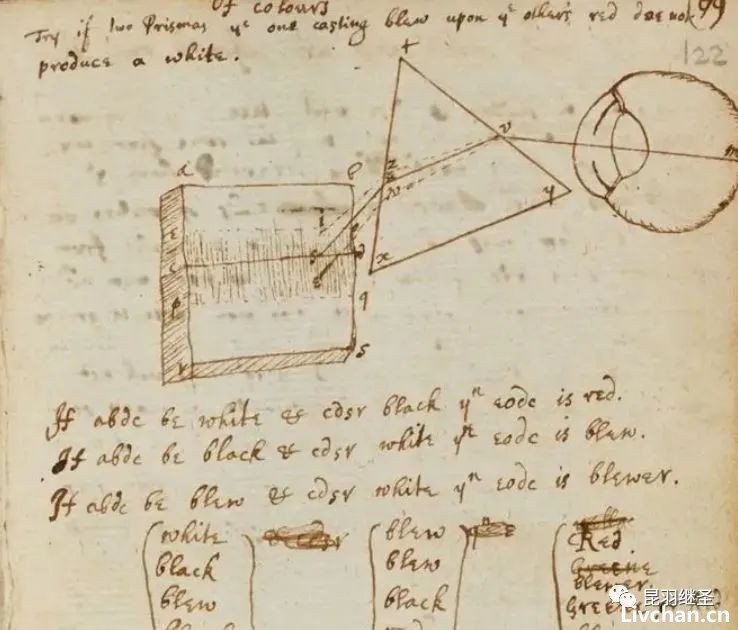 Of colours
99
Try if two Prismas yᵉ one casting blew upon yᵉ others red doe not
produce a white.
122
If abdc be white & cdsr black yⁿ eodc is red.
If abdc be black & cdsr white yⁿ eodc is blew.
If abdc be blew & cdsr white yⁿ eodc is blewer.
white blew Red.
black blew Greene
blew black blewer.
昆羽继圣
Livchan.cn